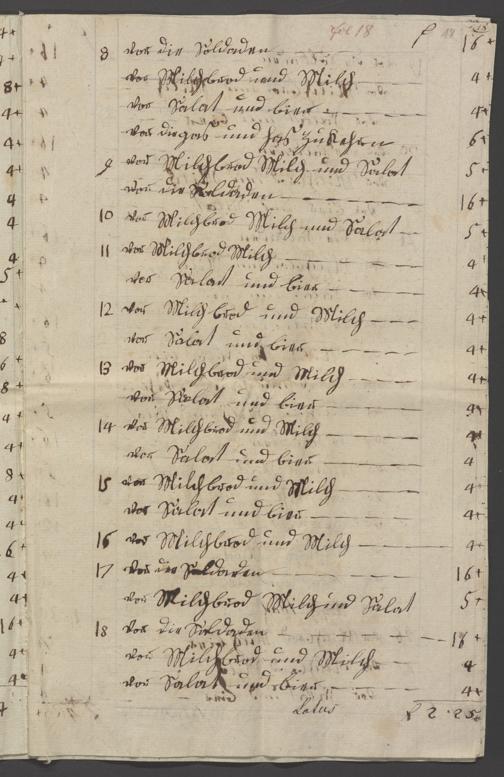 fol 18 f 18
8 vor die Soldaden 16 +
vor Milchbrod und Milch 4 +
vor Salat und bier 4 +
vor die gas und zu kehren 6 +
9 vor Milchbrod Milch und Salat 5 +
vor die Soldaden 16 +
10 vor Milchbrod Milch und Salat 5 +
11 vor Milchbrod Milch 4
vor Salat und bier 4 +
12 vor Milchbrod und Milch 4 +
vor Salat und bier 4 +
13 vor Milchbrod und Milch 4 +
vor Salat und bier 4 +
14 vor Milchbrod und Milch 4
vor Salat und bier 4
15 vor Milchbrod und Milch 4
vor Salat und bier 4 +
16 vor Milchbrod und Milch 4 +
17 vor die Soldaden 16 +
vor Milchbrod Milch und Salat 5 +
18 vor die Soldaden 18 +
vor Milchbrod und Milch 4
vor Salat und bier 4 +
Latus f 2 . 25